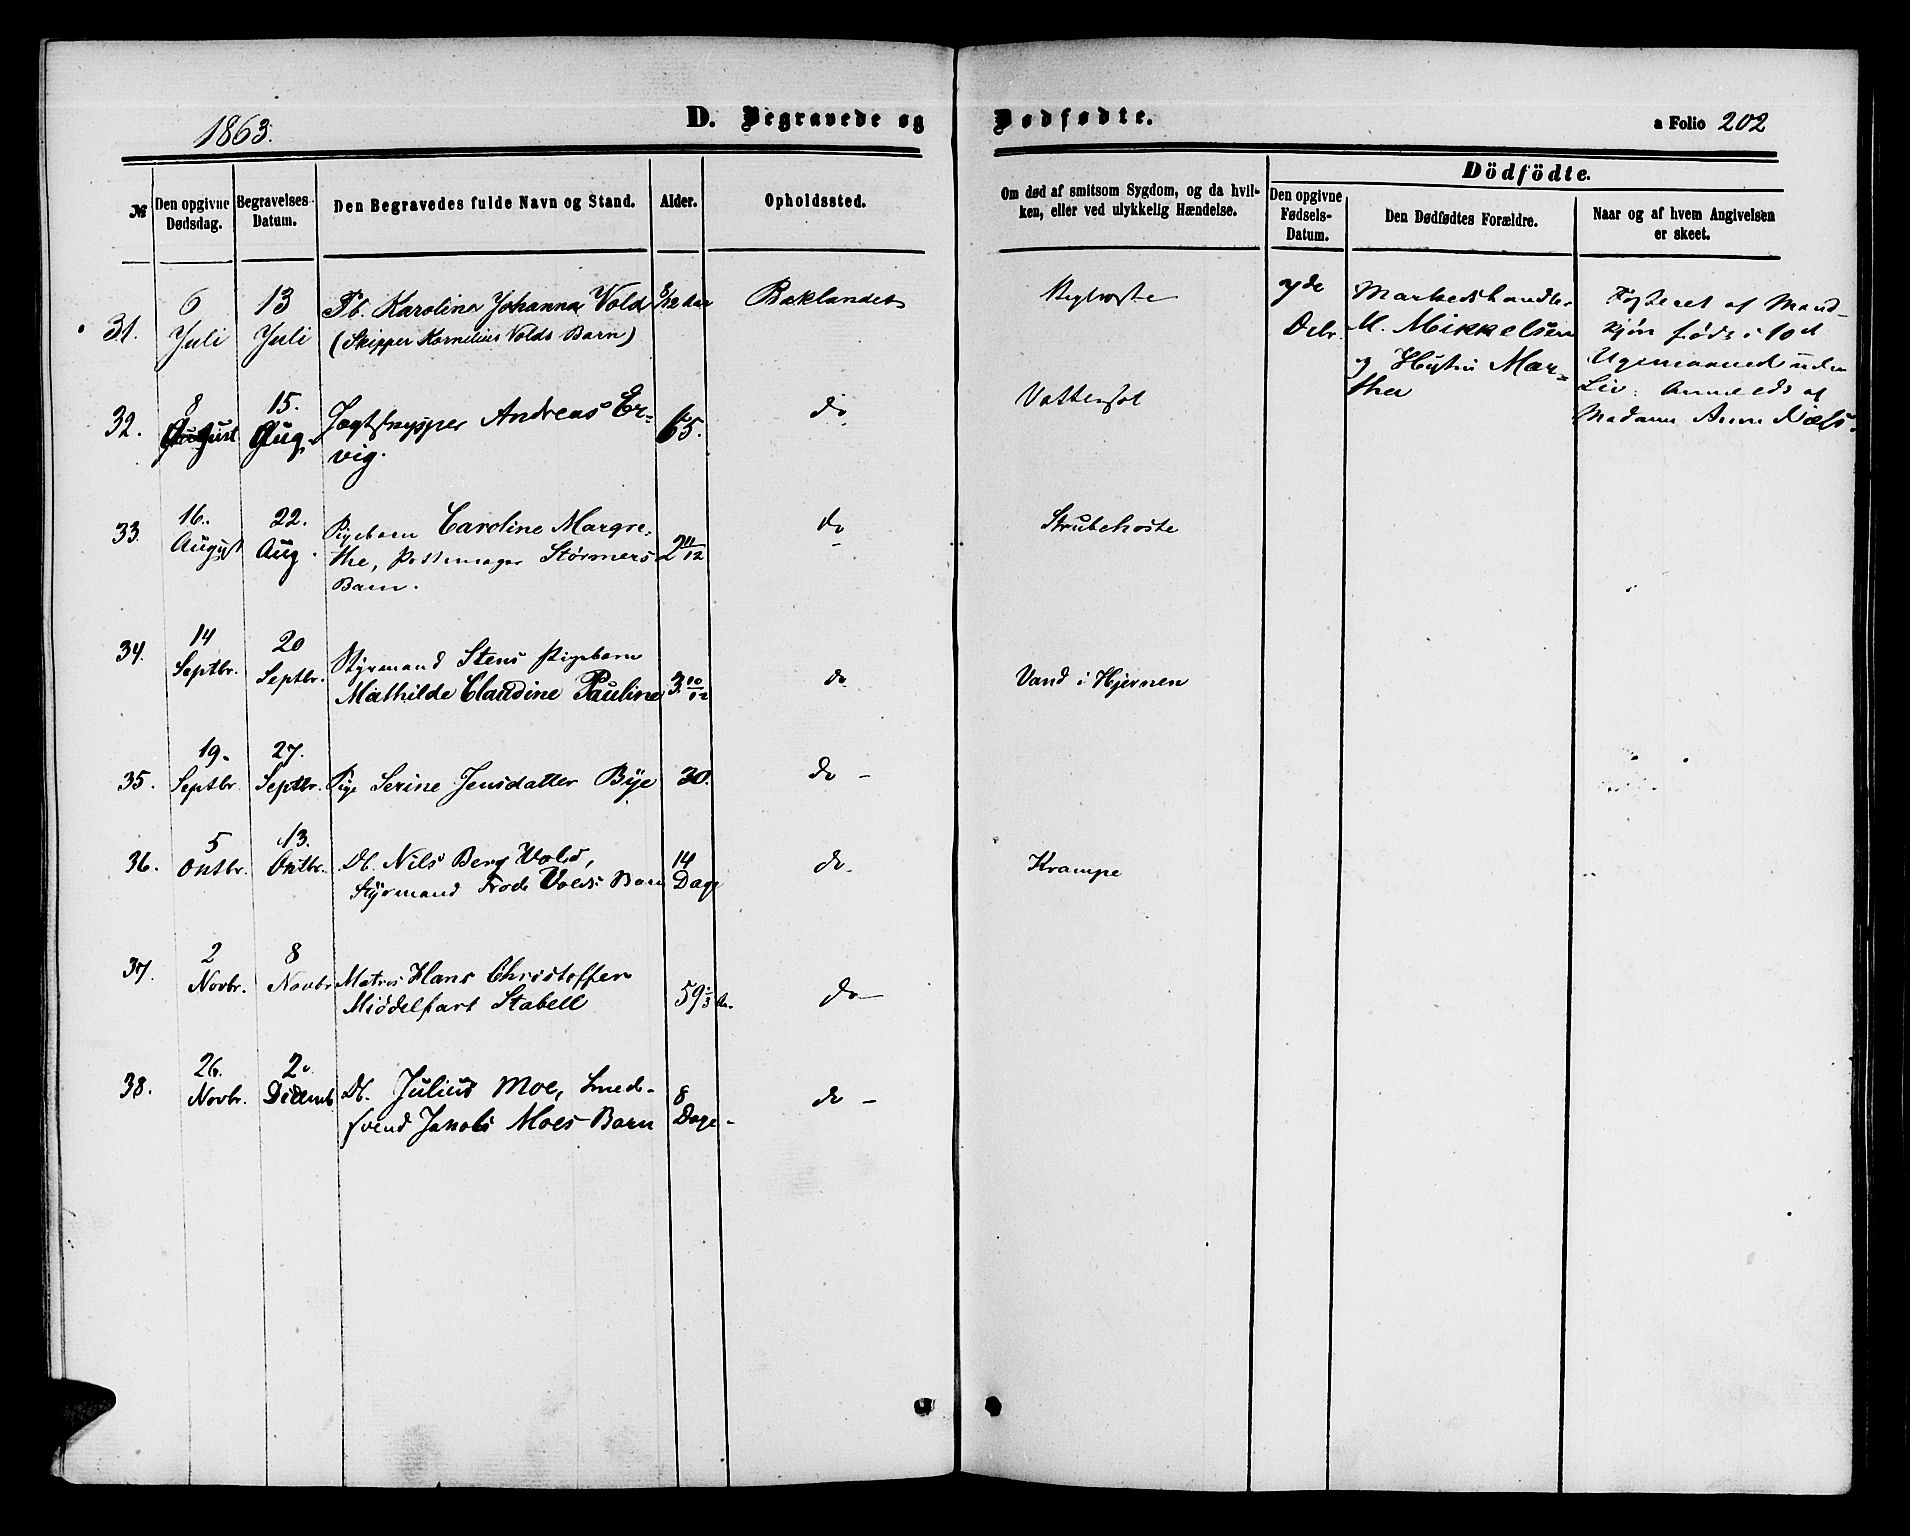 1863.
D. Begravede og Dødfødte.
a Folio 202
№
Den opgivne Dødsdag.
Begravelses-Datum.
Den Begravedes fulde Navn og Stand.
Alder.
Opholdssted.
Om død af smitsom Sygdom, og da hvil-
ken, eller ved ulykkelig Hændelse.
Dödfödte.
Den opgivne Fødsels-Datum.
Den Dødfødtes Forældre.
Naar og af hvem Angivelsen
er skeet.
31. 6 Juli 13 Juli Pb. Karolina Johanna Vold 8/12 Aar Baklandet
(Skipper Kornelius Volds Barn)
9de Debr.
Markedshandler
M. Mikkelsen
og Hustru Mar-
tha
Fosteret af Mand-
kjøn født i 10de
uden
Liv. Anmeldt af
Madame Anne
32. 8 August 15. Aug. Jagtskipper Andreas Er-
vig. 65. do Vattersot
33. 16. August 22. Aug. Pigebarn Caroline Margre-
the, Pottemager Størmers
Barn. 2 11/12 do Strubehoste
34. 14 Septbr. 20 Septbr. Styrmand Stens Pigebarn
Mathilde Claudine Pauline 3 10/12 do Vand i Hjernen
35. 19. Septbr. 27. Septbr. Pige Serine Jensdatter Bye 30. do -
36. 5 Oktbr. 13. Oktbr. Db. Nils Berg Vold,
Styrmand Frode Volds Barn 14 Dage do. Krampe
37. 2 Novbr. 8 Novbr Matros Hans Christoffer
Middelfart Stabell 59 1/3 do -
38. 26. Novbr. 2. Decemb Db. Julius Moe, Smed-
svend Jakobs Moes Barn 8 Dage - do -